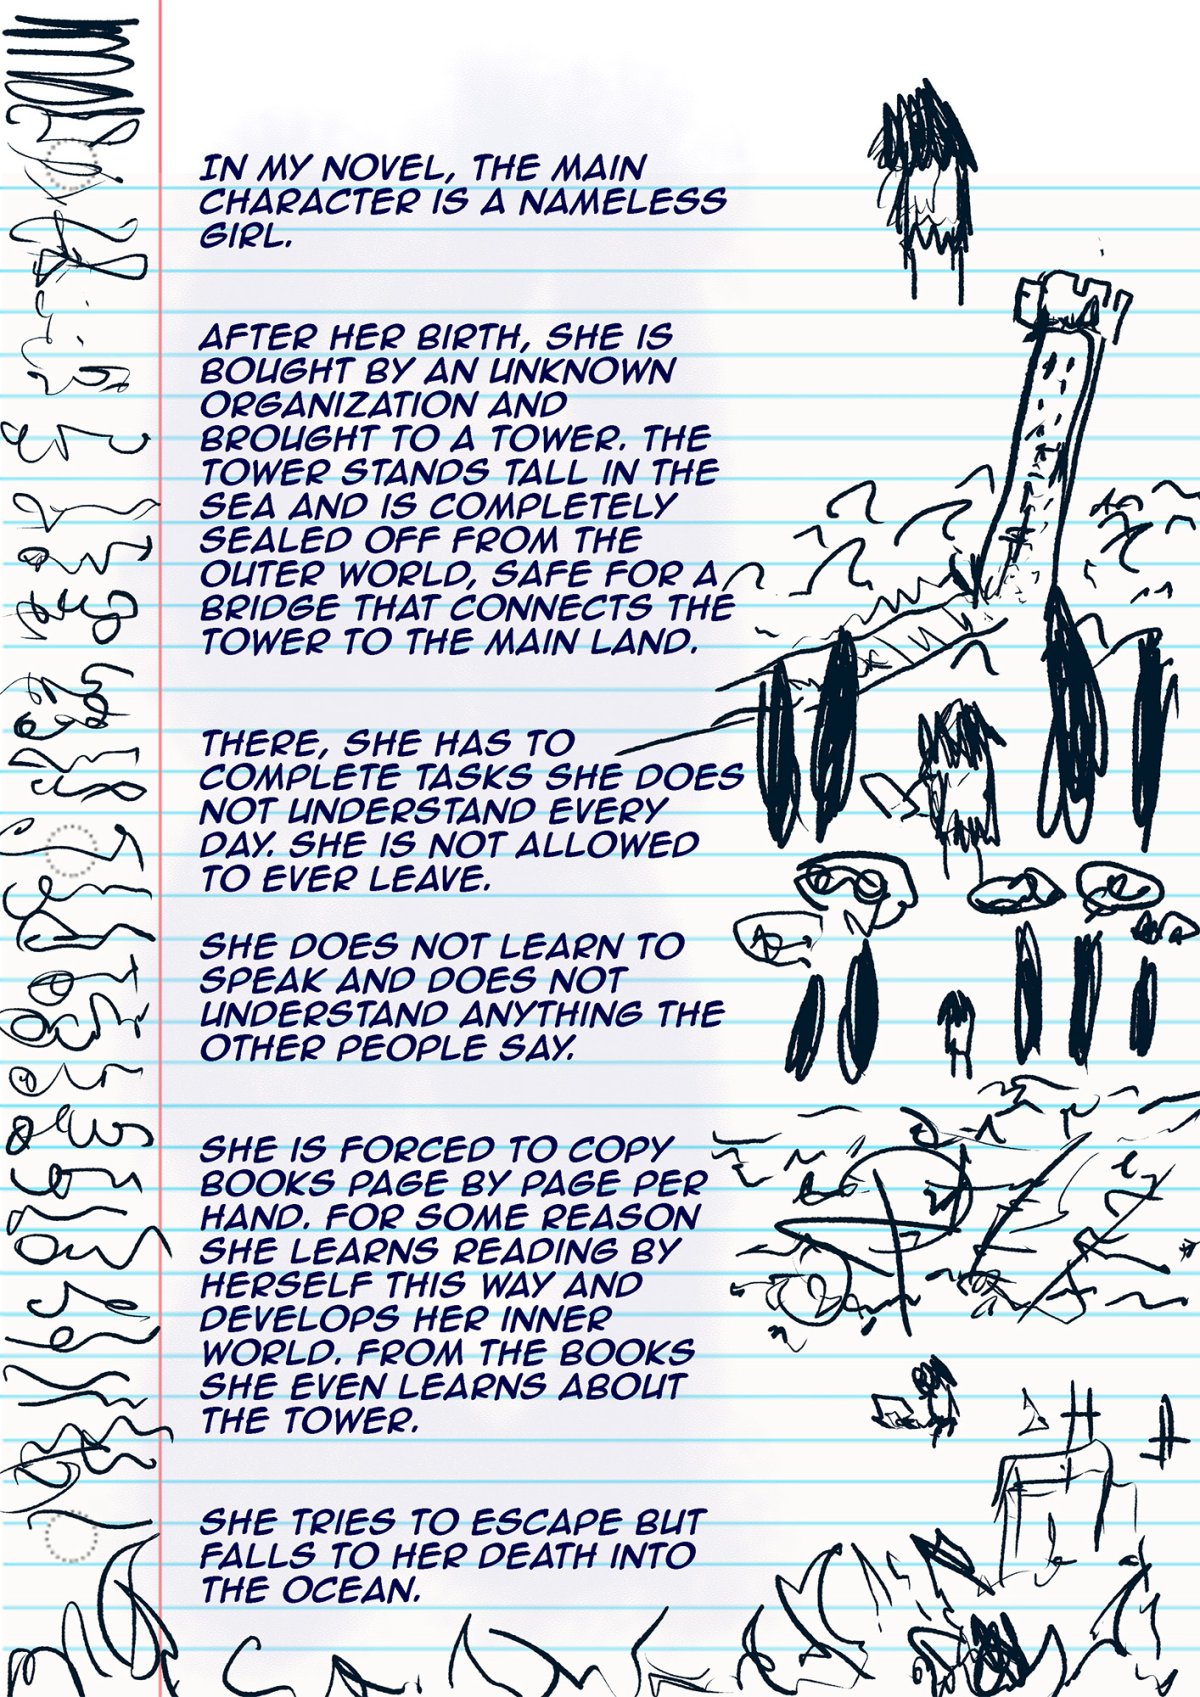 IN MY NOVEL, THE MAIN
CHARACTER IS A NAMELESS
GIRL.
AFTER HER BIRTH, SHE IS
BOUGHT BY AN UNKNOWN
ORGANIZATION AND
BROUGHT TO A TOWER. THE
TOWER STANDS TALL IN THE
SEA AND IS COMPLETELY
SEALED OFF FROM THE
OUTER WORLD, SAFE FOR A
BRIDGE THAT CONNECTS THE
TOWER TO THE MAIN LAND.
THERE, SHE HAS TO
COMPLETE TASKS SHE DOES
NOT UNDERSTAND EVERY
DAY. SHE IS NOT ALLOWED
TO EVER LEAVE.
SHE DOES NOT LEARN TO
SPEAK AND DOES NOT
UNDERSTAND ANYTHING THE
OTHER PEOPLE SAY.
SHE IS FORCED TO COPY
BOOKS PAGE BY PAGE PER
HAND. FOR SOME REASON
SHE LEARNS READING BY
HERSELF THIS WAY AND
DEVELOPS HER INNER
WORLD. FROM THE BOOKS
SHE EVEN LEARNS ABOUT
THE TOWER.
SHE TRIES TO ESCAPE BUT
FALLS TO HER DEATH INTO
THE OCEAN.